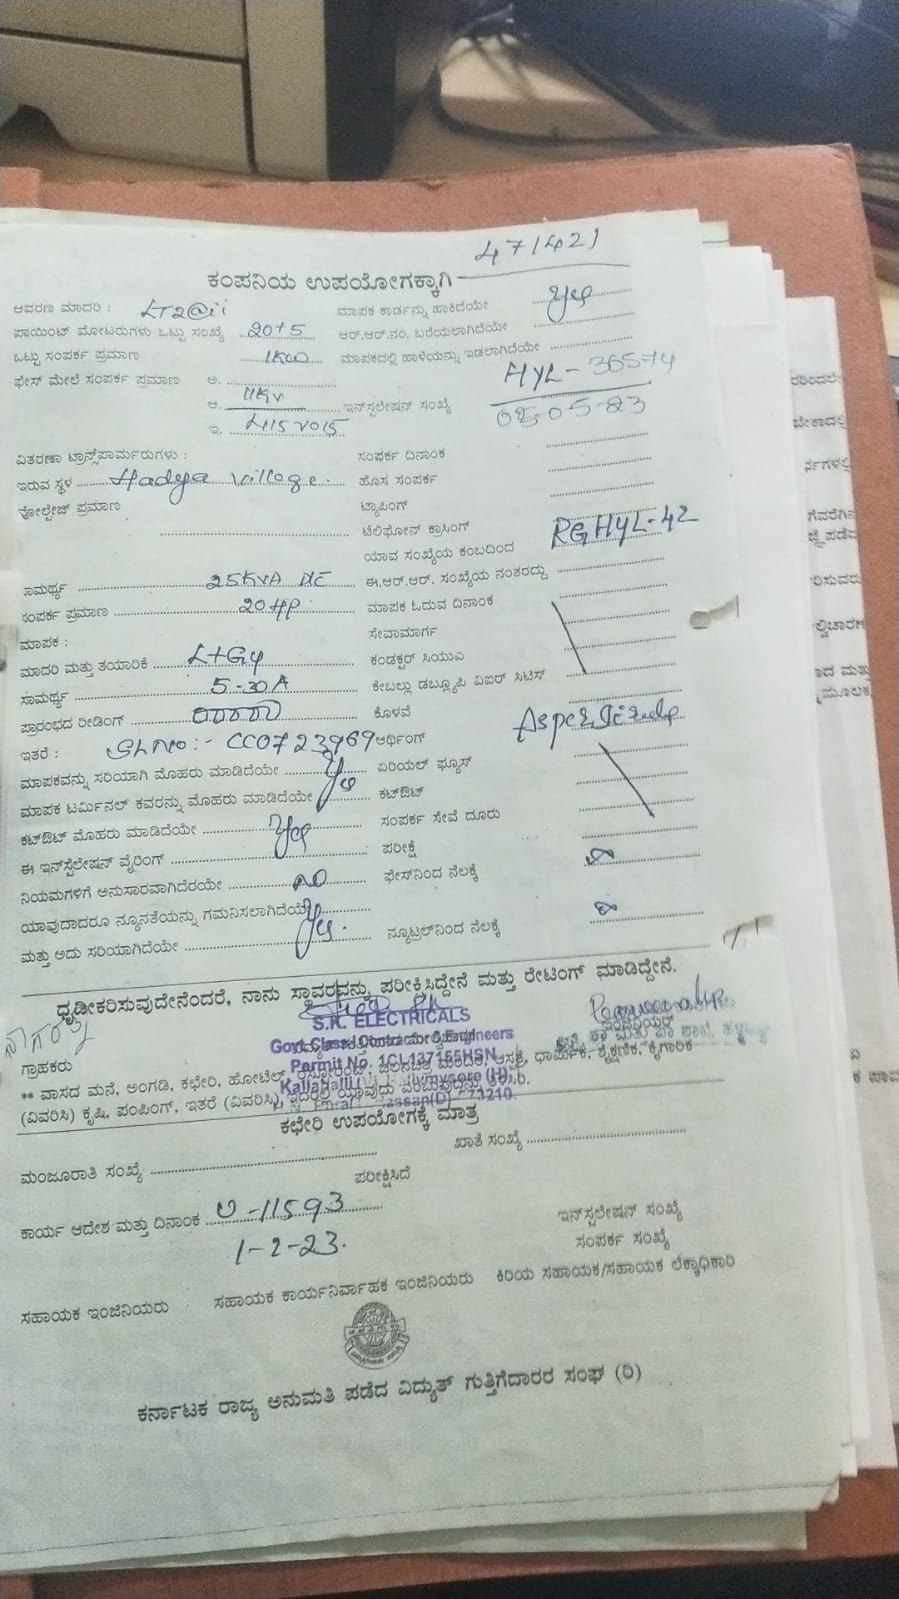 471421
ಕಂಪನಿಯ ಉಪಯೋಗಕ್ಕಾಗಿ
ಆವರಣ ಮಾದರಿ : LT2@ii ಮಾಪಕ ಕಾರ್ಡನ್ನು ಹಾಕಿದೆಯೇ Yes
ಪಾಯಿಂಟ್ ಮೋಟರುಗಳು ಒಟ್ಟು ಸಂಖ್ಯೆ 20+5 ಆರ್.ಆರ್.ನಂ. ಬರೆಯಲಾಗಿದೆಯೇ
ಒಟ್ಟು ಸಂಪರ್ಕ ಪ್ರಮಾಣ ಮಾಪಕದಲ್ಲಿ ಹಾಳೆಯನ್ನು ಇಡಲಾಗಿದೆಯೇ
ಫೇಸ್ ಮೇಲೆ ಸಂಪರ್ಕ ಪ್ರಮಾಣ ಅ. HYL-36574
ಆ. 11KV ಇನ್‌ಸ್ಟಲೇಷನ್ ಸಂಖ್ಯೆ 05-23
ಇ. 415 Vo15
ವಿತರಣಾ ಟ್ರಾನ್ಸ್‌ಪಾರ್ಮರುಗಳು : ಸಂಪರ್ಕ ದಿನಾಂಕ
ಇರುವ ಸ್ಥಳ Hadya Village. ಹೊಸ ಸಂಪರ್ಕ
ವೋಲ್ಟೇಜ್ ಪ್ರಮಾಣ ಟ್ಯಾಪಿಂಗ್
ಟೆಲಿಫೋನ್ ಕ್ರಾಸಿಂಗ್
ಯಾವ ಸಂಖ್ಯೆಯ ಕಂಬದಿಂದ RGHYL-42
ಸಾಮರ್ಥ್ಯ 25KVA ಈ.ಆರ್.ಆರ್. ಸಂಖ್ಯೆಯ ನಂತರದ್ದು
ಸಂಪರ್ಕ ಪ್ರಮಾಣ 20HP ಮಾಪಕ ಓದುವ ದಿನಾಂಕ
ಮಾಪಕ : ಸೇವಾಮಾರ್ಗ
ಮಾದರಿ ಮತ್ತು ತಯಾರಿಕೆ L+Gy ಕಂಡಕ್ಟರ್ ಸಿಯುಎ
ಸಾಮರ್ಥ್ಯ 5-30A ಕೇಬಲ್ಲು ಡಬ್ಲ್ಯೂಪಿ ವಿಐರ್ ಸಿಟಿಸ್
ಪ್ರಾರಂಭದ ರೀಡಿಂಗ್ 00000 ಕೊಳವೆ
ಇತರೆ : SLNo:- CC0723969 ಅರ್ಥಿಂಗ್
ಮಾಪಕವನ್ನು ಸರಿಯಾಗಿ ಮೊಹರು ಮಾಡಿದೆಯೇ ಏರಿಯಲ್ ಫ್ಯೂಸ್
ಮಾಪಕ ಟರ್ಮಿನಲ್ ಕವರನ್ನು ಮೊಹರು ಮಾಡಿದೆಯೇ Yes ಕಟ್‌ಔಟ್
ಕಟ್‌ಔಟ್ ಮೊಹರು ಮಾಡಿದೆಯೇ Yes ಸಂಪರ್ಕ ಸೇವೆ ದೂರು
ಈ ಇನ್‌ಸ್ಟೆಲೇಷನ್ ವೈರಿಂಗ್ ಪರೀಕ್ಷೆ
ನಿಯಮಗಳಿಗೆ ಅನುಸಾರವಾಗಿದೆರಯೇ NO ಫೇಸ್‌ನಿಂದ ನೆಲಕ್ಕೆ
ಯಾವುದಾದರೂ ನ್ಯೂನತೆಯನ್ನು ಗಮನಿಸಲಾಗಿದೆಯೆ
ಮತ್ತು ಅದು ಸರಿಯಾಗಿದೆಯೇ Yes. ನ್ಯೂಟ್ರಲ್‌ನಿಂದ ನೆಲಕ್ಕೆ
ಧೃಡೀಕರಿಸುವುದೇನೆಂದರೆ, ನಾನು ಸ್ಥಾವರವನ್ನು ಪರೀಕ್ಷಿಸಿದ್ದೇನೆ ಮತ್ತು ರೇಟಿಂಗ್ ಮಾಡಿದ್ದೇನೆ.
S.K. ELECTRICALS
ಇಂಜಿನಿಯರ್
Govt. Class-I Contractor & Engineers
ಗ್ರಾಹಕರು
Permit No. 1CL137155HSN
** ವಾಸದ ಮನೆ, ಅಂಗಡಿ, ಕಛೇರಿ, ಹೋಟೆಲ್, ಆಸ್ಪತ್ರೆ, ಧಾರ್ಮಿಕ, ಶೈಕ್ಷಣಿಕ, ಕೈಗಾರಿಕ
(ವಿವರಿಸಿ) ಕೃಷಿ, ಪಂಪಿಂಗ್, ಇತರೆ (ವಿವರಿಸಿ),
ಕಛೇರಿ ಉಪಯೋಗಕ್ಕೆ ಮಾತ್ರ
ಮಂಜೂರಾತಿ ಸಂಖ್ಯೆ ಖಾತೆ ಸಂಖ್ಯೆ
ಪರೀಕ್ಷಿಸಿದೆ
ಕಾರ್ಯ ಆದೇಶ ಮತ್ತು ದಿನಾಂಕ -11593
1-2-23.
ಇನ್‌ಸ್ಟಲೇಷನ್ ಸಂಖ್ಯೆ
ಸಂಪರ್ಕ ಸಂಖ್ಯೆ
ಸಹಾಯಕ ಇಂಜಿನಿಯರು ಸಹಾಯಕ ಕಾರ್ಯನಿರ್ವಾಹಕ ಇಂಜಿನಿಯರು ಕಿರಿಯ ಸಹಾಯಕ/ಸಹಾಯಕ ಲೆಕ್ಕಾಧಿಕಾರಿ
ಕರ್ನಾಟಕ ರಾಜ್ಯ ಅನುಮತಿ ಪಡೆದ ವಿದ್ಯುತ್ ಗುತ್ತಿಗೆದಾರರ ಸಂಘ (ರಿ)